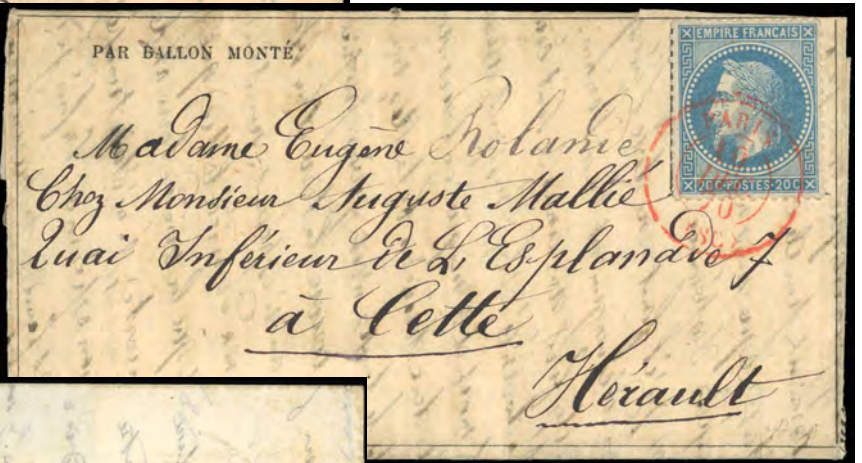 PAR BALLON MONTÉ
EMPIRE FRANÇAIS
20C POSTES 20C
PARIS
70
Madame Eugène Rolande
Chez Monsieur Auguste Mallié
Quai Inférieur de L'Esplanade 7
à Cette
Hérault